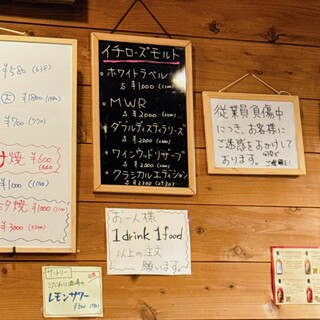 ¥580 (638)
大 ¥1800 (1980)
¥700 (770)
焼 ¥600
(660)
¥1000 (1100)
焼 ¥1000 (1100)
¥3000
イチローズモルト
・ホワイトラベル
S ¥1000 (1100)
・MWR
S ¥2000 (2200)
・ダブルディスティラリーズ
S ¥2000 (2200)
・ワインウッドリザーブ
S ¥2000 (2200)
・クラシカルエディション
S ¥2300 (2530)
従業員負傷中
につき、お客様に
ご迷惑をおかけして
おります。
お一人様
1drink 1food
以上の注文
願います。
サントリー
こだわり酒場の
レモンサワー